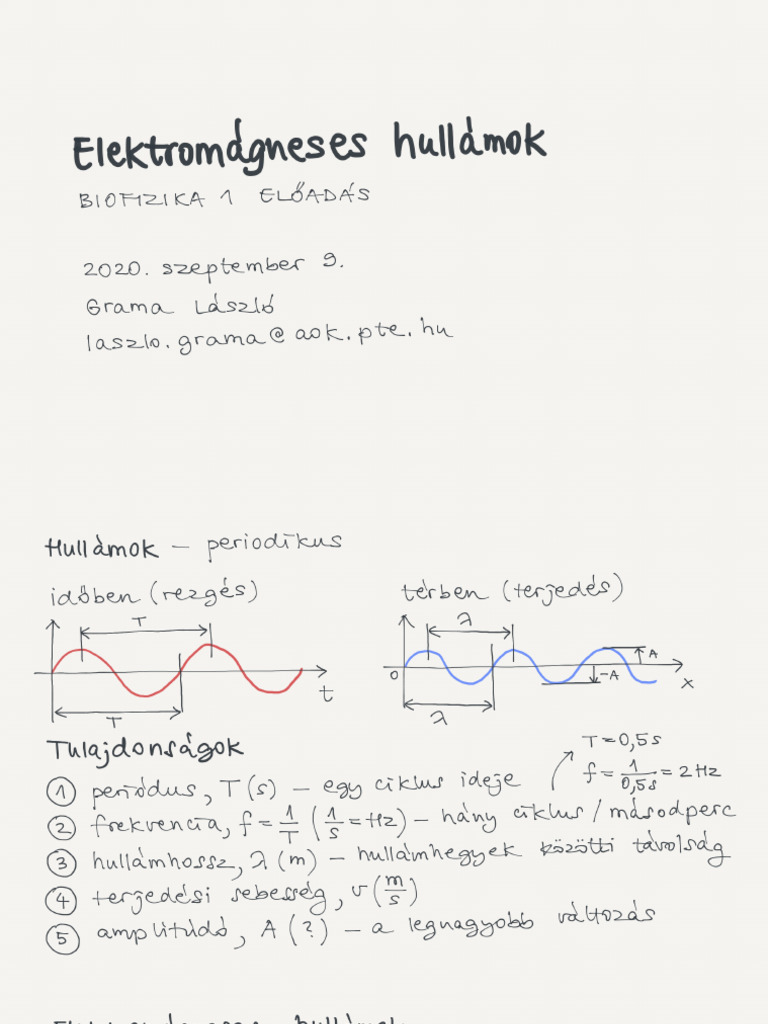 Elektromágneses hullámok
BIOFIZIKA 1 ELŐADÁS
2020. szeptember 9.
Grama László
laszlo.grama@aok.pte.hu
Hullámok – periodikus
időben (rezgés)
térben (terjedés)
T
λ
A
-A
0
t
x
T
λ
Tulajdonságok
T=0,5s
f = 1/0,5s = 2Hz
① periódus, T(s) – egy ciklus ideje
② frekvencia, f = 1/T (1/s = Hz) – hány ciklus / másodperc
③ hullámhossz, λ (m) – hullámhegyek közötti távolság
④ terjedési sebesség, v (m/s)
⑤ amplitúdó, A (?) – a legnagyobb változás
Elektromágneses hullámok